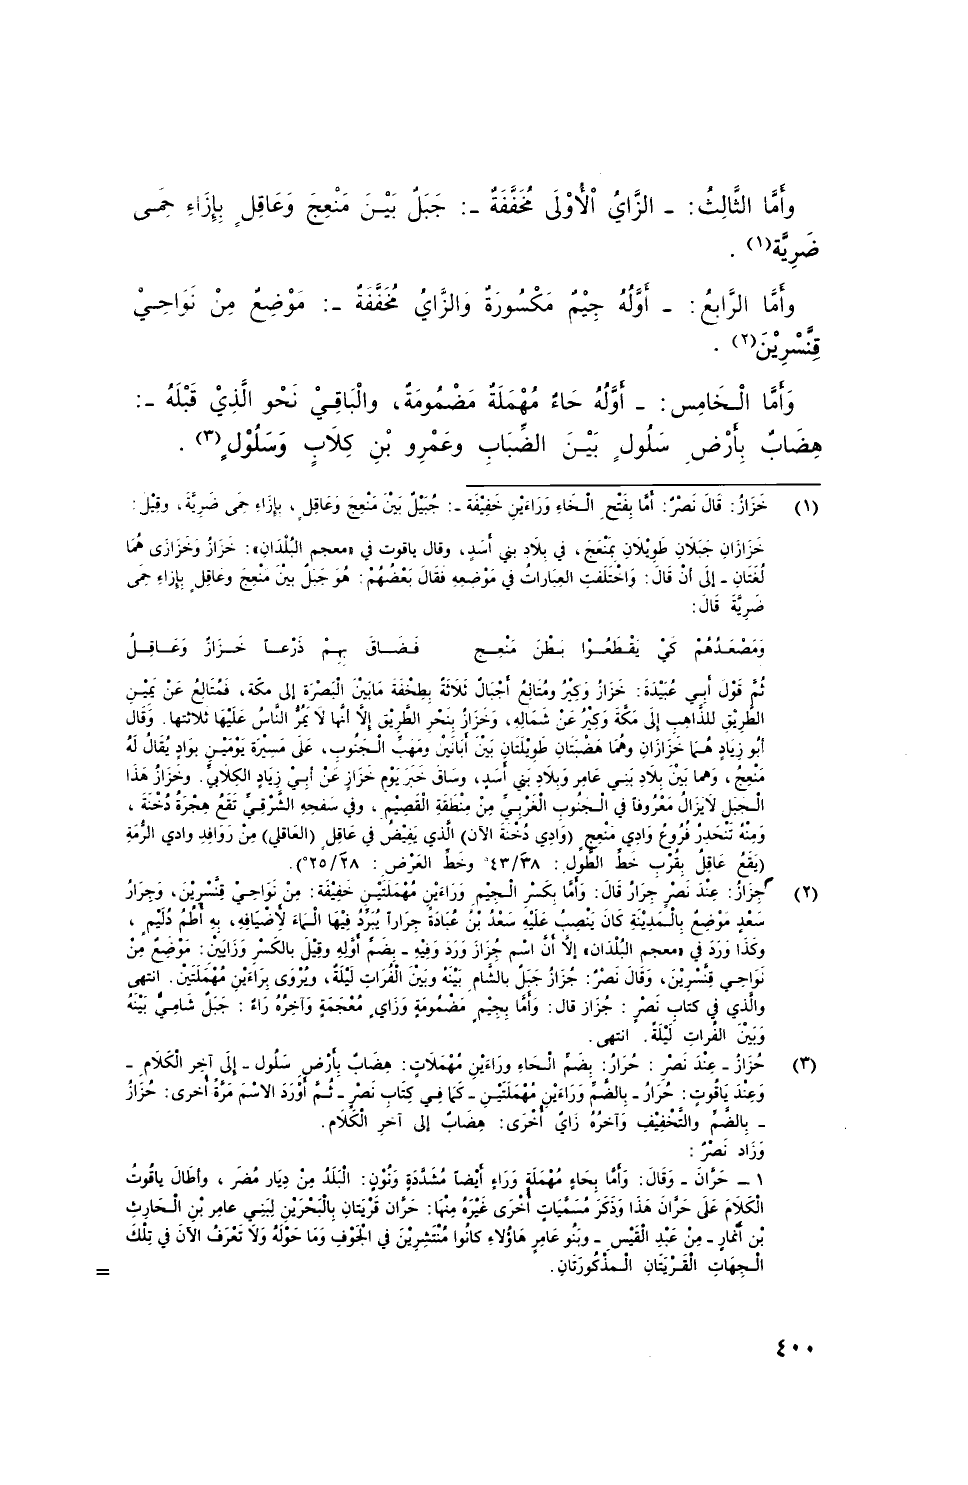 وأَمَّا الثَّالِثُ: ـ الزَّايُ الْأُوْلَى مُخَفَّفَةٌ ـ: جَبَلٌ بَيْنَ مَنْعِجَ وَعَاقِلٍ بِإِزَاءِ حِمَى
ضَرِيَّة(١) .
وأَمَّا الرَّابِعُ: ـ أَوَّلُهُ جِيْمٌ مَكْسُورَةٌ وَالزَّايُ مُخَفَّفَةٌ ـ: مَوْضِعٌ مِنْ نَوَاحِيْ
قِنَّسْرِيْنَ(٢) .
وَأَمَّا الْخَامِس: ـ أَوَّلُهُ حَاءٌ مُهْمَلَةٌ مَضْمُومَةٌ، والْبَاقِيْ نَحْو الَّذِيْ قَبْلَهُ ـ:
هِضَابٌ بِأَرْضِ سَلُولٍ بَيْنَ الضِّبَابِ وعَمْرِو بْنِ كِلَابٍ وَسَلُوْلٍ(٣) .
(١) خَزَازُ: قَالَ نَصْرٌ: أَمَّا بِفَتْحِ الْخَاءِ وَرَاءَيْنِ خَفِيْفَة ـ: جُبَيْلٌ بَيْنَ مَنْعِجَ وَعَاقِلٍ، بِإِزَاءِ حِمَى ضَرِيَّةَ، وَقِيْلَ:
خَزَازَانِ جَبَلَانِ طَوِيْلَانِ بِمَنْعَجَ، في بِلَادِ بني أَسَدٍ، وقال ياقوت في «معجم البُلْدَانِ»: خَزَازُ وَخَزَازَى هُمَا
لُغَتَانِ ـ إلى أنْ قَالَ: وَاخْتَلَفَتِ العِبَارَاتُ في مَوْضِعِهِ فَقَالَ بَعْضُهُمْ: هُوَ جَبَلُ بيْنَ مَنْعِجَ وعَاقِلٍ بِإِزاءِ حِمَى
ضَرِيَّةَ قَالَ:
وَمَصْعَدُهُمْ كَيْ يَقْطَعُوْا بَطْنَ مَنْعِجٍ فَضَاقَ بِهِمْ ذَرْعاً خَزَازٌ وَعَاقِلُ
ثُمَّ قَوْلَ أَبِي عُبَيْدَةَ: خَزَازُ وَكِيْرُ ومُتَالِعُ أَجْبَالٌ ثَلَاثَةٌ بِطِخْفَةَ مَابَيْنَ الْبَصْرَةِ إلى مكّة، فَمُتَالِعُ عَنْ يَمِيْنِ
الطَّرِيْقِ للذَّاهِبِ إلى مَكَّةَ وَكِيْرُ عَنْ شَمَالِهِ، وَخَزَازُ بِنَحْرِ الطَّرِيْقِ إلَّا أنَّها لَا يَمُرُّ النَّاسُ عَلَيْهَا ثَلَاثتها. وَقَال
أبُو زِيَادٍ هُمَا خَزَازَانِ وهُمَا هَضْبَتَانِ طَوِيْلَتَانِ بَيْنَ أَبَانَيْنِ ومَهَبِّ الْجَنُوبِ، عَلَى مَسِيْرَةِ يَوْمَيْنِ بِوَادٍ يُقَالُ لَهُ
مَنْعِجُ، وهما بَيْنَ بِلَادِ بَنِي عَامِرٍ وَبِلَادِ بَني أَسَدٍ، وساقَ خَبَرَ يَوْمِ خَزَازٍ عَنْ أَبِيْ زِيَادٍ الكِلَابيِّ. وخَزازُ هَذَا
الْجَبَل لَايزالُ مَعْرُوفاً في الْجَنُوبِ الْغَرْبِيِّ مِنْ مِنْطَقَةِ الْقَصِيْمِ، وفي سَفحِهِ الشَّرْقيِّ تَقَعُ هِجْرَةُ دُخْنَةَ،
وَمِنْهُ تَنْحَدِرُ فُرُوعُ وَادي مَنْعِجٍ (وَادِي دُخْنَةَ الآن) الَّذي يَفِيْضُ في عَاقِلٍ (العاقلي) مِنْ رَوَافِدِ وادي الرُّمَةِ
(يَقَعُ عَاقِلُ بِقُرْبِ خَطِّ الطُّولِ: ٤٣/٣٨° وخطِّ العَرْضِ: ٢٥/٢٨°).
(٢) جِزَازُ: عِنْدَ نَصْرٍ جِرَارُ قَالَ: وَأَمَّا بِكَسْرِ الْجِيْمِ وَرَاءَيْنِ مُهْمَلَتَيْنِ خَفِيْفَة: مِنْ نَوَاحِيْ قِنَّسْرِيْنَ، وَجِرَارُ
سَعْدٍ مَوْضِعٌ بِالْمَدِيْنَةِ كَانَ يَنْصِبُ عَلَيْهِ سَعْدُ بْنُ عُبَادَةَ جِرَاراً يُبَرِّدُ فِيْهَا الْمَاءَ لِأَضْيَافِهِ، بِهِ أُطُمُ دُلَيْمٍ،
وكَذَا وَرَدَ في «معجم البُلْدان» إلَّا أَنَّ اسْمَ جُزَازَ وَرَدَ وَفِيْهِ ـ بِضَمِّ أَوَّلِهِ وقِيْلَ بالكَسْرِ وزَايَيْنِ: مَوْضِعٌ مِنْ
نَوَاحِي قِنَّسْرِيْنَ، وَقَالَ نَصْرٌ: جُزَازُ جَبَلٌ بالشَّامِ بَيْنَهُ وَبَيْنَ الْفُرَاتِ لَيْلَةٌ، ويُرْوَى بِرَاءَيْنِ مُهْمَلَتَيْنِ. انتهى
والَّذي في كتابِ نَصْرٍ: جُزَار قال: وَأَمَّا بِجِيْمٍ مَضْمُومَةٍ وَزَايٍ مُعْجَمَةٍ وَآخِرُهُ رَاءٌ: جَبَلٌ شَامِيٌّ بَيْنَهُ
وَبَيْنَ الفُراتِ لَيْلَةٌ. انتهى.
(٣) حُزَازُ ـ عِنْدَ نَصْرٍ: حُرَارُ: بِضَمِّ الْحَاءِ ورَاءَيْنِ مُهْمَلَاتٍ: هِضَابٌ بِأَرْضِ سَلُولَ ـ إلَى آخِرِ الْكَلَامِ ـ
وَعِنْدَ يَاقُوتٍ: حُرَارُ ـ بِالضَّمِّ وَرَاءَيْنِ مُهْمَلَتَيْنِ ـ كَمَا فِي كِتَابِ نَصْرٍ ـ ثُمَّ أَوْرَدَ الاسْمَ مَرَّةً أُخرى: حُزَازُ
ـ بِالضَّمِّ والتَّخْفِيْفِ وَآخرُهُ زَايٌ أُخْرَى: هِضَابٌ إلى آخرِ الْكَلَامِ.
وَزَادَ نَصْرٌ:
١ ــ حَرَّانَ ـ وَقَالَ: وَأَمَّا بِحَاءٍ مُهْمَلَةٍ وَرَاءٍ أَيْضاً مُشَدَّدَةٍ وَنُوْنٍ: الْبَلَدُ مِنْ دِيَارِ مُضَرَ، وأطَالَ ياقُوتُ
الْكَلَامَ عَلَى حَرَّانَ هَذَا وَذَكَرَ مُسَمَّيَاتٍ أُخْرَى غَيْرَهُ مِنْهَا: حَرَّان قَرْيَتَانِ بِالْبَحْرَيْنِ لِبَنِي عامِرِ بْنِ الْحَارِثِ
بْنِ أَنْمَارٍ ـ مِنْ عَبْدِ القَيْسِ ـ وبَنُو عَامِرٍ هَاؤُلَاءِ كَانُوا مُنْتَشِرِيْنَ في الجَوْفِ وَمَا حَوْلَهُ وَلَا تَعْرَفُ الآنَ في تِلْكَ
الْجِهَاتِ الْقَرْيَتَانِ الْمَذْكُورَتَانِ. =
٤٠٠